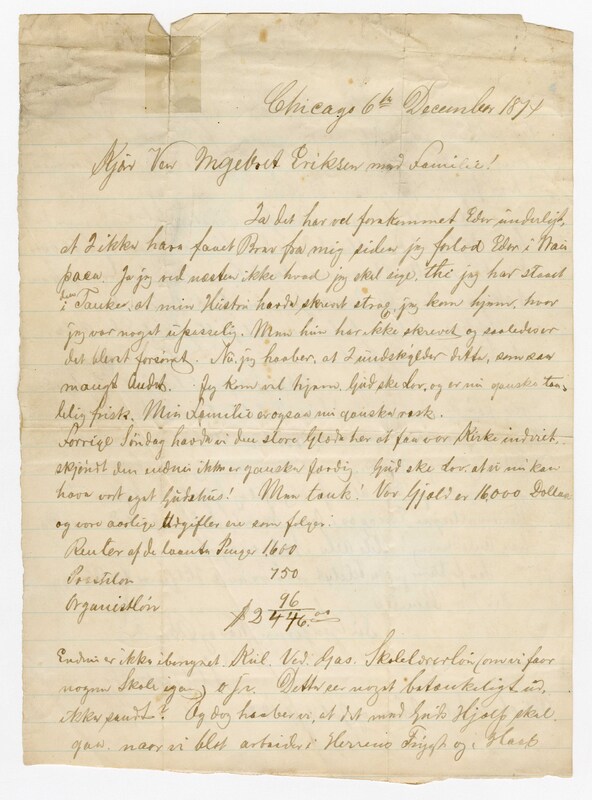 Chicago 6te December 1874
Kjære Ven Ingebret Eriksen med Familie!
Ja det har vel forekommet Eder underligt,
at I ikke have faaet Brev fra mig siden jeg forlod Eder i
Ja jeg ved næsten ikke hvad jeg skal sige, thi jeg har staaet
i Tanker, at min Hustru havde skrevet strax jeg kom hjem, hvor
jeg var noget upasselig. Men hun har ikke skrevet og saaledes er
det blevet forsømt. Nu jeg haaber, at I undskylder dette, som saa
meget Andet. Jeg kom vel hjem, Gud ske Lov, og er nu ganske taa-
lelig frisk. Min Familie er ogsaa nu ganske rask.
Forrige Søndag havde vi den store Glæde her at faa vor Kirke indviet,
skjøndt den endnu ikke er ganske færdig. Gud ske Lov, at vi nu kan
have vort eget Gudshus! Men tænk! Vor Gjæld er 16,000 Dollars
og vore aarlige Udgifter ere som følger:
Renter af de laante Penger 1600
Presteløn 750
Organistløn 96
$ 2446.00
Endnu er ikke iberegnet Kul, Ved, Gas, Skolelærerløn (om vi faar
nogen Skole igang) o.s.v. Dette ser noget betænkeligt ud,
ikke sandt? Og dog haaber vi, at det med Guds Hjælp skal
gaa, naar vi blot arbeider i Herrens Frygt og i Haab